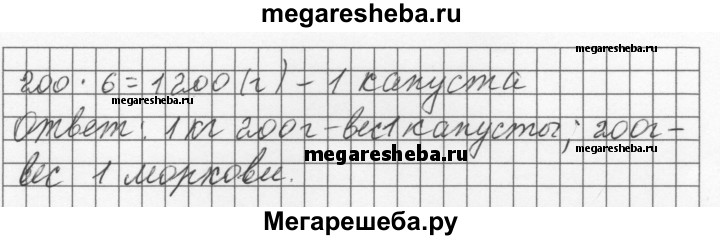 megaresheba.ru
megaresheba.ru
200 · 6 = 1200 (г) – 1 капуста
megaresheba.ru
Ответ: 1 кг 200г – вес 1 капусты; 200г –
megaresheba.ru
megaresheba.ru
вес 1 моркови.
Мегарешеба.ру